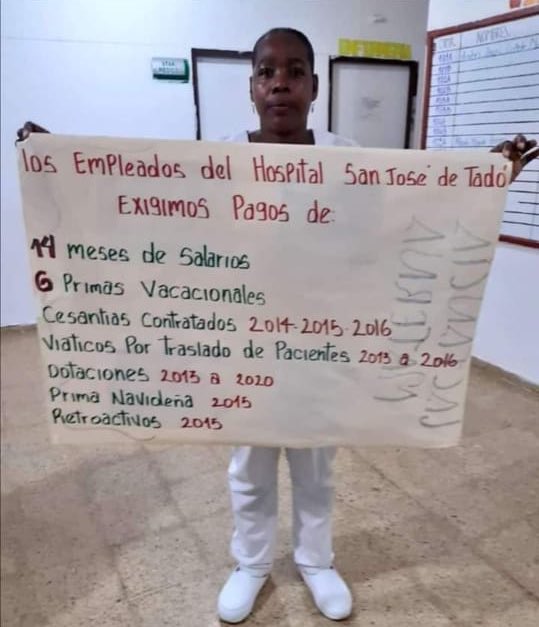 los EmPleados del HosPital San José de Tadó
Exigimos Pagos de:
14 meses de Salarios
6 Primas Vacacionales
Cesantias Contratados 2014-2015-2016
Viaticos Por traslado de Pacientes 2013 a 2016
Dotaciones 2013 a 2020
Prima Navideña 2015
Retroactivos 2015
STAR
NOMBRES